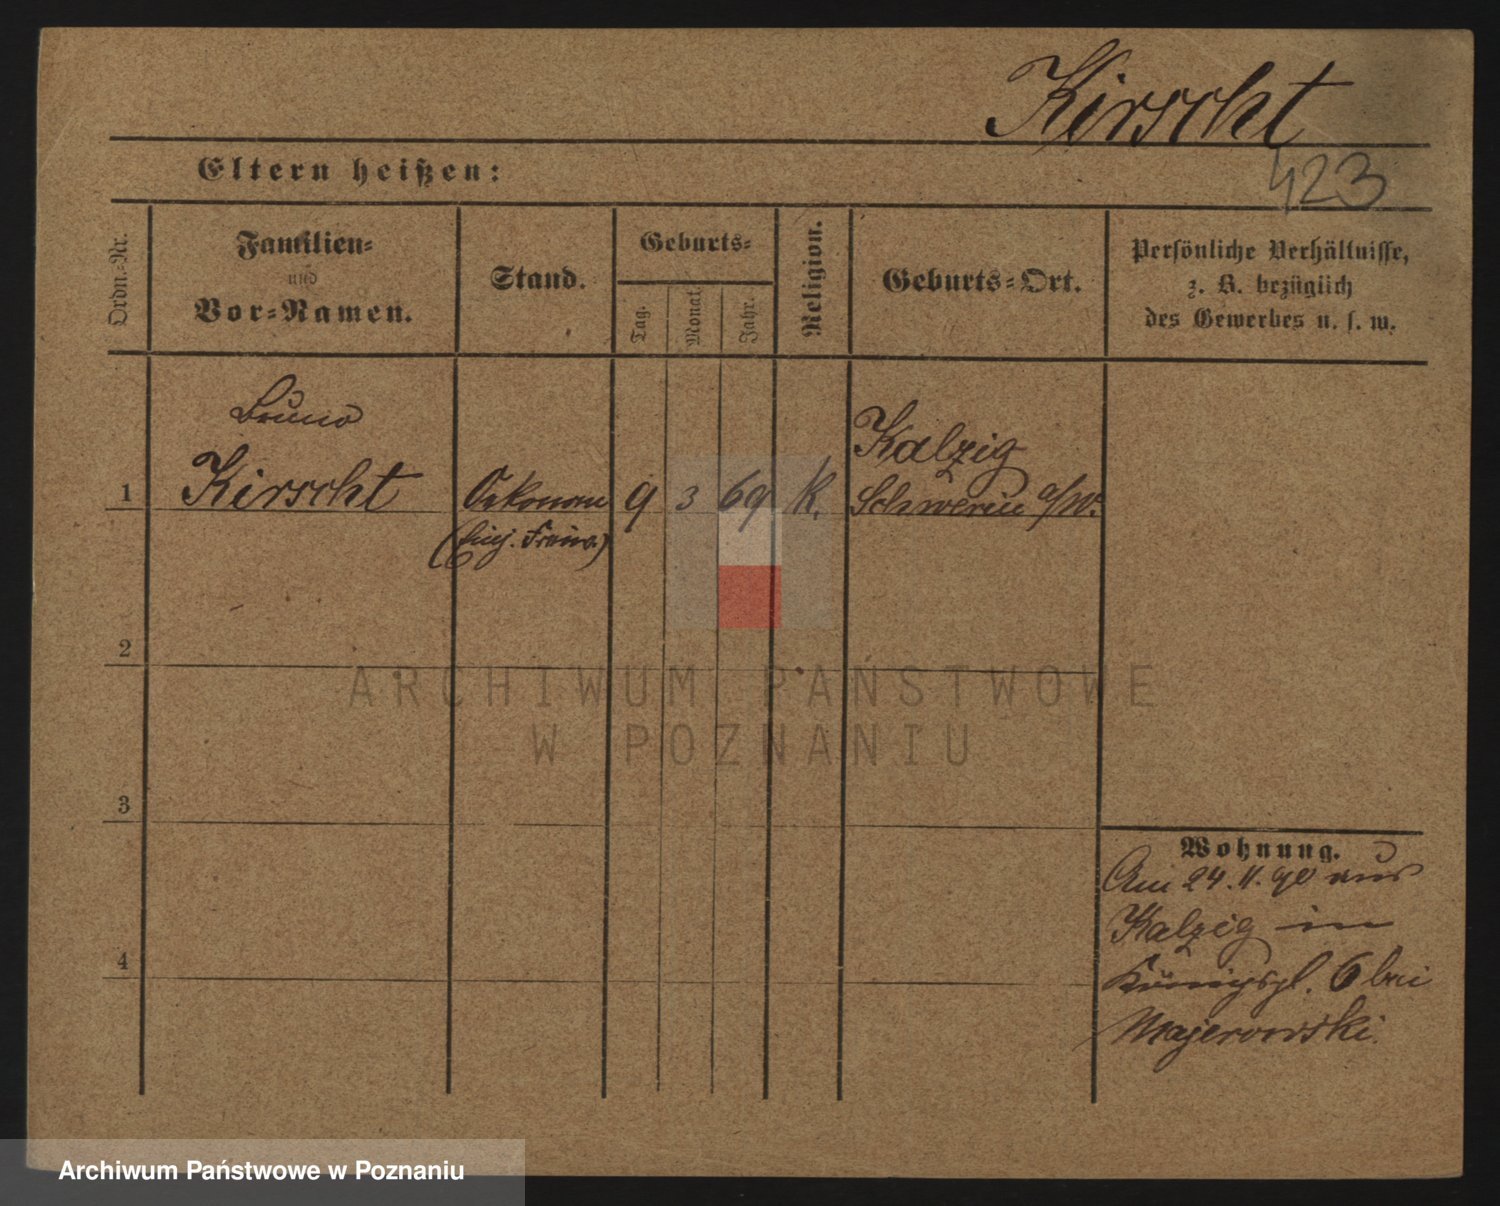 Kirscht
Eltern heißen:
423
Ordn.=Nr.
Familien=
und
Vor=Namen.
Stand.
Geburts=
Tag.
Monat.
Jahr.
Religion.
Geburts=Ort.
Persönliche Verhältnisse,
z. B. bezüglich
des Gewerbes u. s. w.
Bruno
1 Kirscht Oekonom 9 3 69 K. Kalzig
Schwerin a/W.
(Einj. Freiw.)
2
ARCHIWUM PAŃSTWOWE
W POZNANIU
3
Wohnung.
Am 24.11.90 aus
Kalzig in
4
Königspl. 6 bei
Majerowski.
Archiwum Państwowe w Poznaniu